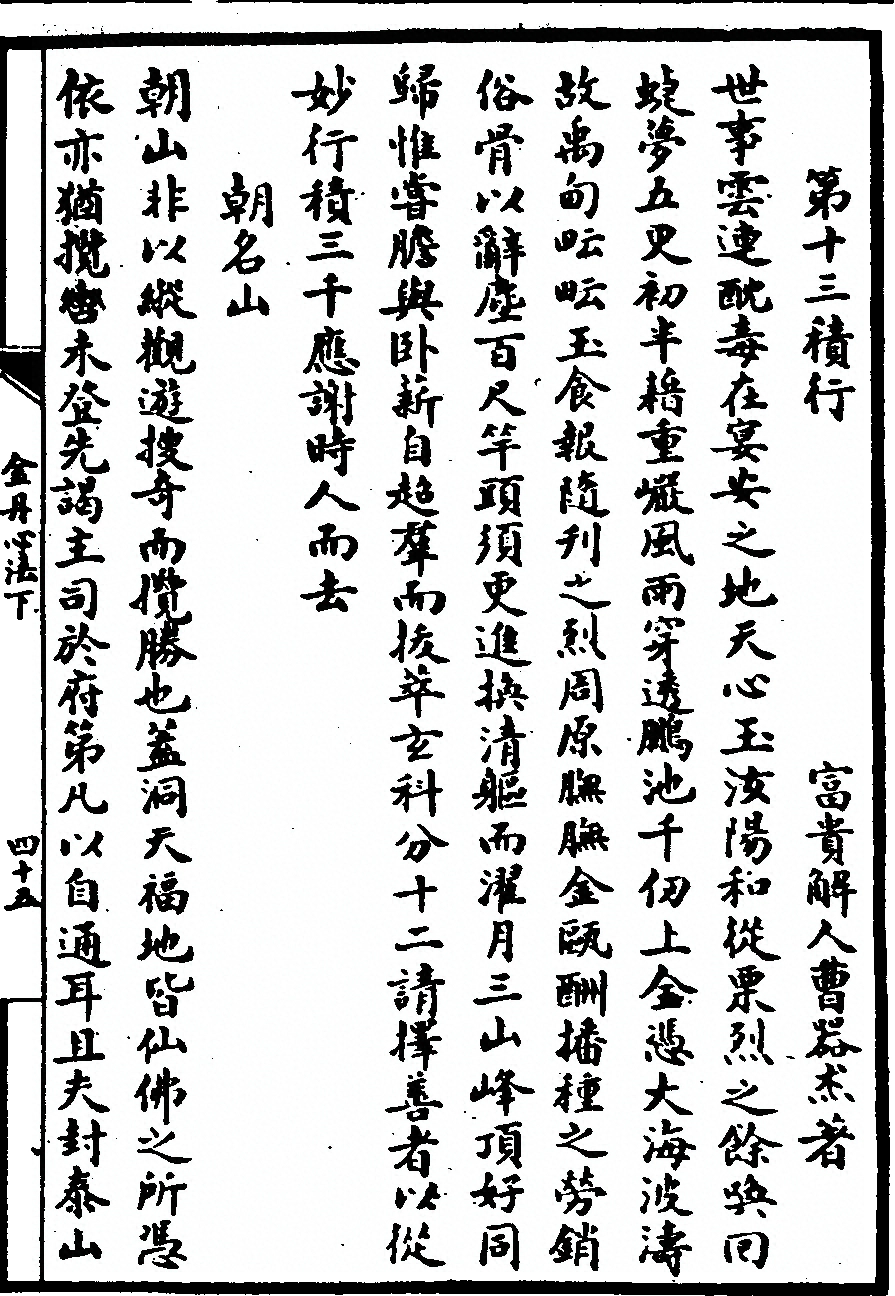 第十三積行　富貴解人曹器杰著
世事雲連酖毒在宴安之地天心玉汝陽和從栗烈之餘喚回
蝶夢五更初半藉重巖風雨穿透鵬池千仞上全憑大海波濤
故禹甸畇畇玉食報隨刋之烈周原膴膴金甌酬播種之勞銷
俗骨以辭塵百尺竿頭須更進換清軀而濯月三山峰頂好同
歸惟嘗膽與卧薪自超羣而拔萃玄科分十二請擇善者以從
妙行積三千應謝時人而去
朝名山
朝山非以縱觀遊搜奇而攬勝也蓋洞天福地皆仙佛之所憑
依亦猶攬轡未登先謁主司於府第凡以自通耳且夫封泰山
金丹心法下
四十五